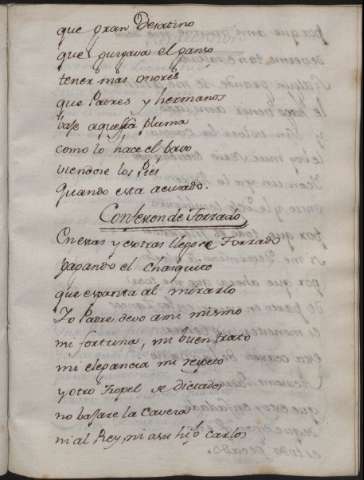 que gran Desatino
que guzgava el ganso
tener mas onores
que Padres y hermanos
vase aquesta pluma
como lo hace el pavo
viendose los Pies
quando esta acivado.
Confesion de Forzado
En esas y esotras llego el Forzado
papando el chasquito
que espanta al mirarlo
Yo Padre, devo a mi mismo
mi fortuna, mi buen trato
mi elegancia mi respeto
y otro tropel de dictados
no bajare la Cavesa
ni al Rey, ni a su hijo Carlos